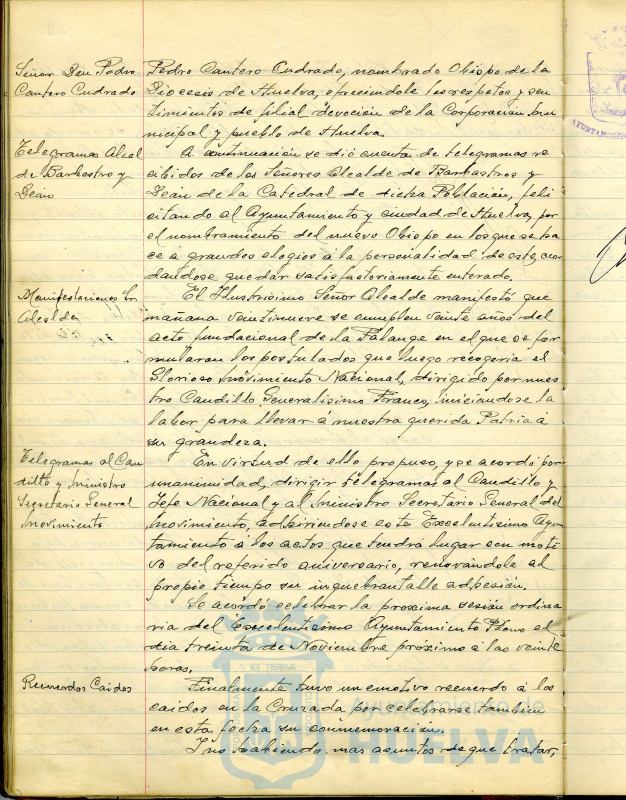 Señor Don Pedro
Cantero Cuadrado
Pedro Cantero Cudrado, nombrado Obispo de la
Diocesis de Huelva, ofreciendole los respetos y sen
timientos de filial devoción de la Corporación Mu
nicipal y pueblo de Huelva.
Telegramas Alcal
de Barbastro y
Dean
A continuación se dió cuenta de telegramas re
cibidos de los Señores Alcalde de Barbastros y
Dean de la Catedral de dicha Población, feli
citando al Ayuntamiento y ciudad de Huelva, por
el nombramiento del nuevo Obispo en los que se ha
ce á grandes elogios á la personalidad de este, acor
dandose quedar satisfactoriamente enterado.
Manifestaciones Sr.
Alcalde
El Ilustrísimo Señor Alcalde manifestó que
mañana veintinueve se cumplen veinte años del
acto fundacional de la Falange en el que se for
mularan los postulados que luego recogeria el
Glorioso Movimiento Nacional, dirigido por nues
tro Caudillo Generalisimo Franco, iniciandose la
labor para llevar á nuestra querida Patria á
su grandeza.
Telegramas al Cau
dillo y Ministro
Secretario General
Movimiento
En virtud de ello propuso, y se acordó por
unanimidad, dirigir telegramas al Caudillo y
Jefe Nacional y al Ministro Secretario General del
Movimiento, adhiriendose este Excelentisimo Ayun
tamiento á los actos que tendrá lugar con moti
vo del referido aniversario, renovándole al
propio tiempo su inquebrantable adhesión.
Se acordó celebrar la proxima sesión ordina
ria del Excelentisimo Ayuntamiento Pleno el
dia treinta de Noviembre próximo á las veinte
horas.
Recuerdos Caidos
Finalmente tuvo un emotivo recuerdo á los
caidos en la Cruzada por celebrarse tambien
en esta fecha su conmemoración.
Y no habiendo mas asuntos de que tratar,
Ayuntamiento de
HUELVA